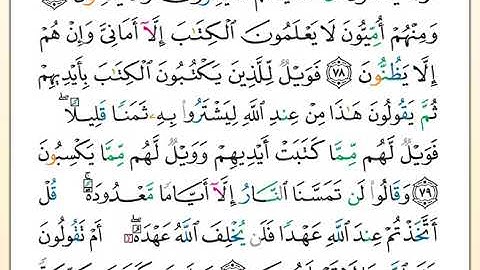 وَمِنْهُمْ أُمِّيُّونَ لَا يَعْلَمُونَ ٱلْكِتَٰبَ إِلَّآ أَمَانِىَّ وَإِنْ هُمْ
إِلَّا يَظُنُّونَ ٧٨ فَوَيْلٌ لِّلَّذِينَ يَكْتُبُونَ ٱلْكِتَٰبَ بِأَيْدِيهِمْ
ثُمَّ يَقُولُونَ هَٰذَا مِنْ عِندِ ٱللَّهِ لِيَشْتَرُوا۟ بِهِۦ ثَمَنًا قَلِيلًا ۖ
فَوَيْلٌ لَّهُم مِّمَّا كَتَبَتْ أَيْدِيهِمْ وَوَيْلٌ لَّهُم مِّمَّا يَكْسِبُونَ
٧٩ وَقَالُوا۟ لَن تَمَسَّنَا ٱلنَّارُ إِلَّآ أَيَّامًا مَّعْدُودَةً ۚ قُلْ
أَتَّخَذْتُمْ عِندَ ٱللَّهِ عَهْدًا فَلَن يُخْلِفَ ٱللَّهُ عَهْدَهُۥٓ ۖ أَمْ تَقُولُونَ